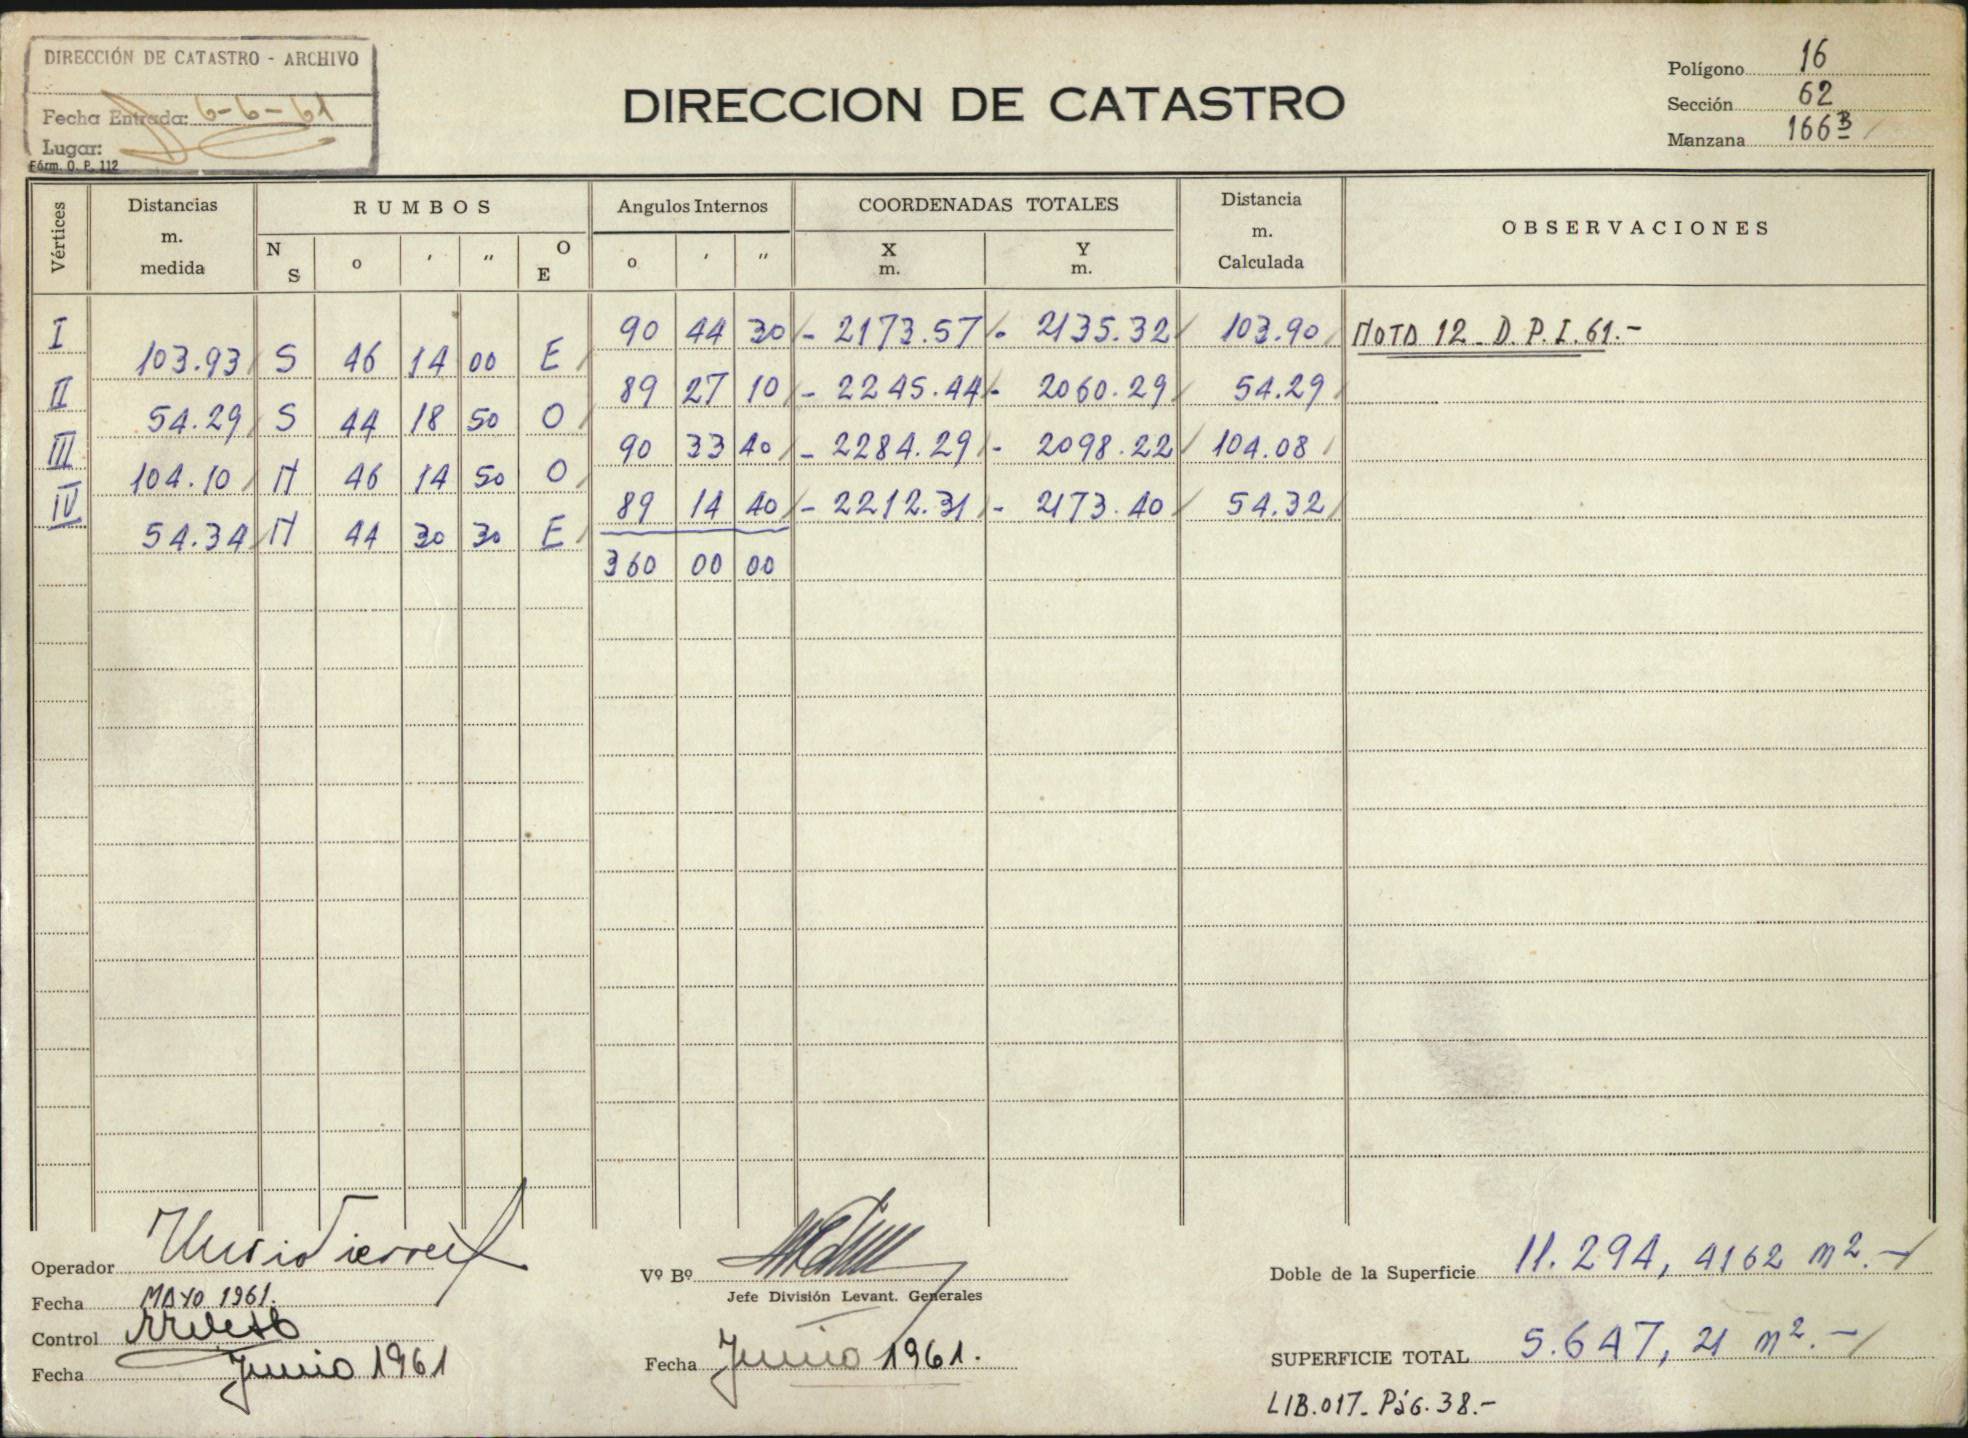 DIRECCIÓN DE CATASTRO - ARCHIVO
Fecha Entrada: 6-6-61
Lugar:
Fórm. O. P. 112
DIRECCION DE CATASTRO
Polígono 16
Sección 62
Manzana 166 B
Vértices Distancias m. medida RUMBOS Angulos Internos COORDENADAS TOTALES Distancia m. Calculada OBSERVACIONES
N S o ' " O E o ' " X m. Y m.
I 90 44 30 - 2173.57 - 2135.32 103.90 NOTA 12 - D.P.I.61.-
103.93 S 46 14 00 E
II 89 27 10 - 2245.44 - 2060.29 54.29
54.29 S 44 18 50 O
III 90 33 40 - 2284.29 - 2098.22 104.08
104.10 N 46 14 50 O
IV 89 14 40 - 2212.31 - 2173.40 54.32
54.34 N 44 30 30 E
360 00 00
Operador
Fecha MAYO 1961.
Control
Fecha Junio 1961
Vº Bº
Jefe División Levant. Generales
Fecha Junio 1961.
Doble de la Superficie 11.294, 4162 m2.-
SUPERFICIE TOTAL 5.647, 21 m2.-
LIB.017- Pág. 38.-